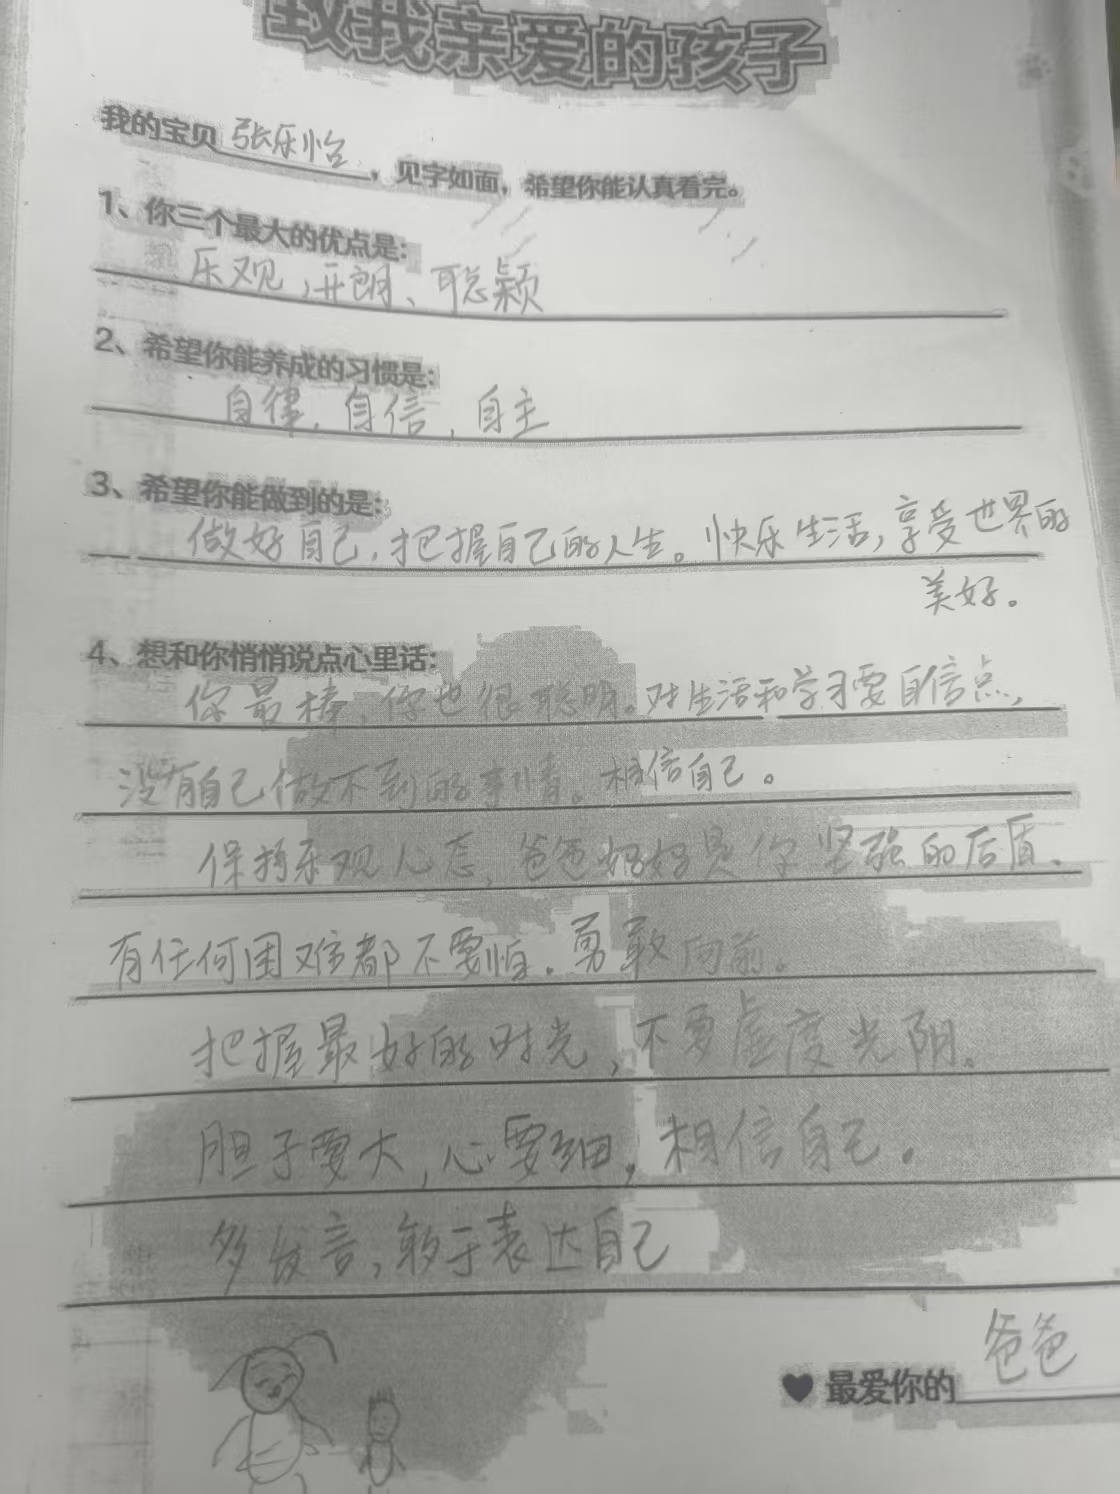 致我亲爱的孩子
我的宝贝张乐怡，见字如面，希望你能认真看完。
1、你三个最大的优点是:
乐观，开朗、聪颖
2、希望你能养成的习惯是:
自律，自信，自主
3、希望你能做到的是:
做好自己，把握自己的人生。快乐生活，享受世界的
美好。
4、想和你悄悄说点心里话:
你最棒，你也很聪明。对生活和学习要自信点，
没有自己做不到的事情。相信自己。
保持乐观心态，爸爸妈妈是你坚强的后盾。
有任何困难都不要怕。勇敢向前。
把握最好的时光，不要虚度光阴。
胆子要大，心要细，相信自己。
多发言，敢于表达自己
♥最爱你的爸爸